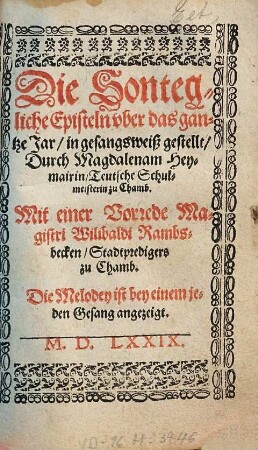 Die Sonteg-
liche Episteln vber das gan-
tze Jar/ in gesangsweiß gestellt/
Durch Magdalenam Hey-
mairin/ Teutsche Schul-
meisterin zu Chamb.
Mit einer Vorrede Ma-
gistri Wilibaldi Rambs-
becken/ Stadtpredigers
zu Chamb.
Die Melodey ist bey einem je-
den Gesang angezeigt.
M. D. LXXIX.